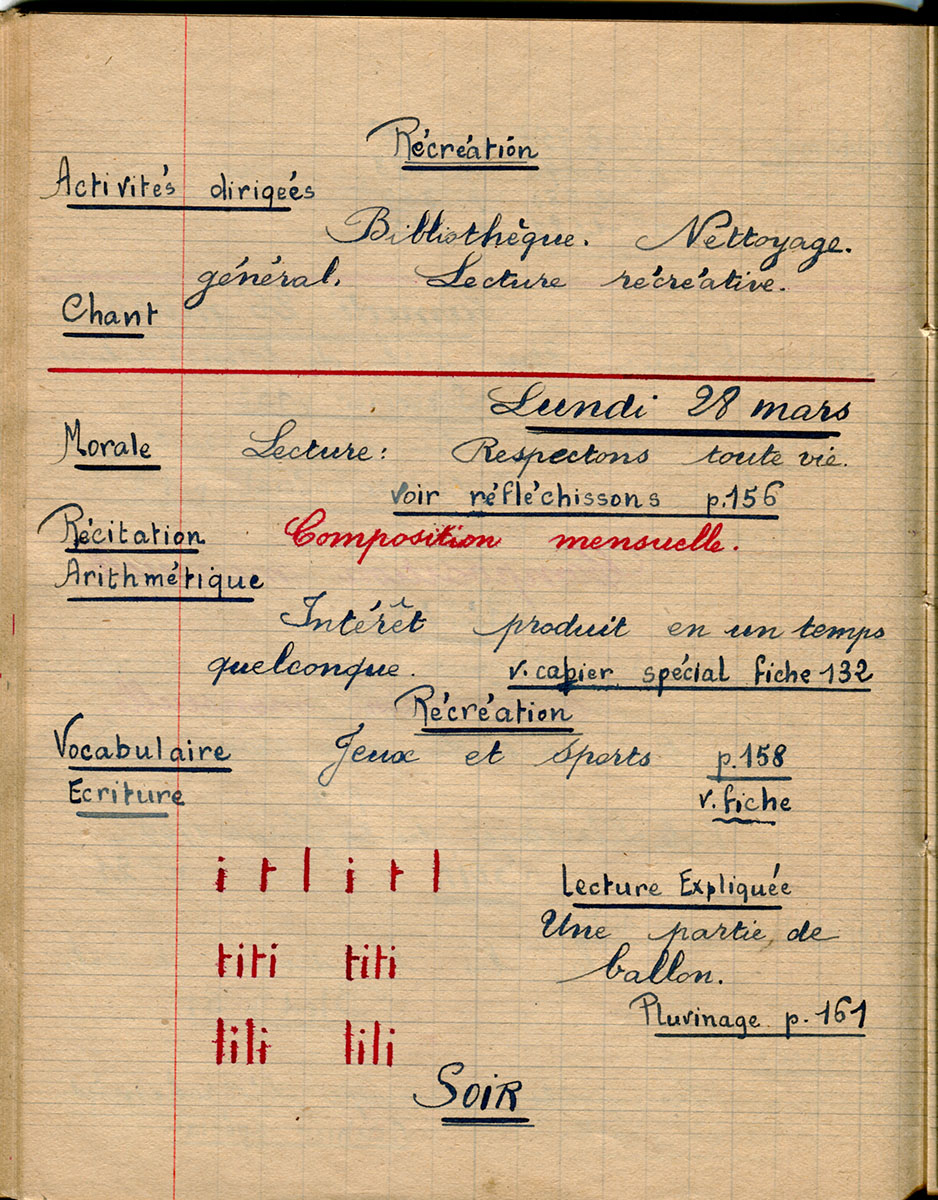 Récréation
Activités dirigées
Bibliothèque. Nettoyage.
général. Lecture récréative.
Chant
Lundi 28 mars
Morale Lecture: Respectons toute vie.
voir réfléchissons p.156
Récitation Composition mensuelle.
Arithmétique
Intérêt produit en un temps
quelconque. v. cahier spécial fiche 132
Récréation
Vocabulaire Jeux et sports p.158
Ecriture v. fiche
i t l i t l
Lecture Expliquée
Une partie de
titi titi
ballon.
Pluvinage p.161
lili lili
SOIR